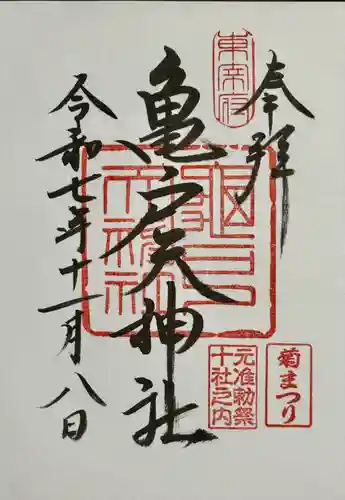 奉拝
東宰府
亀戸天神社
令和七年十一月八日
元准勅祭
十社之内
菊まつり